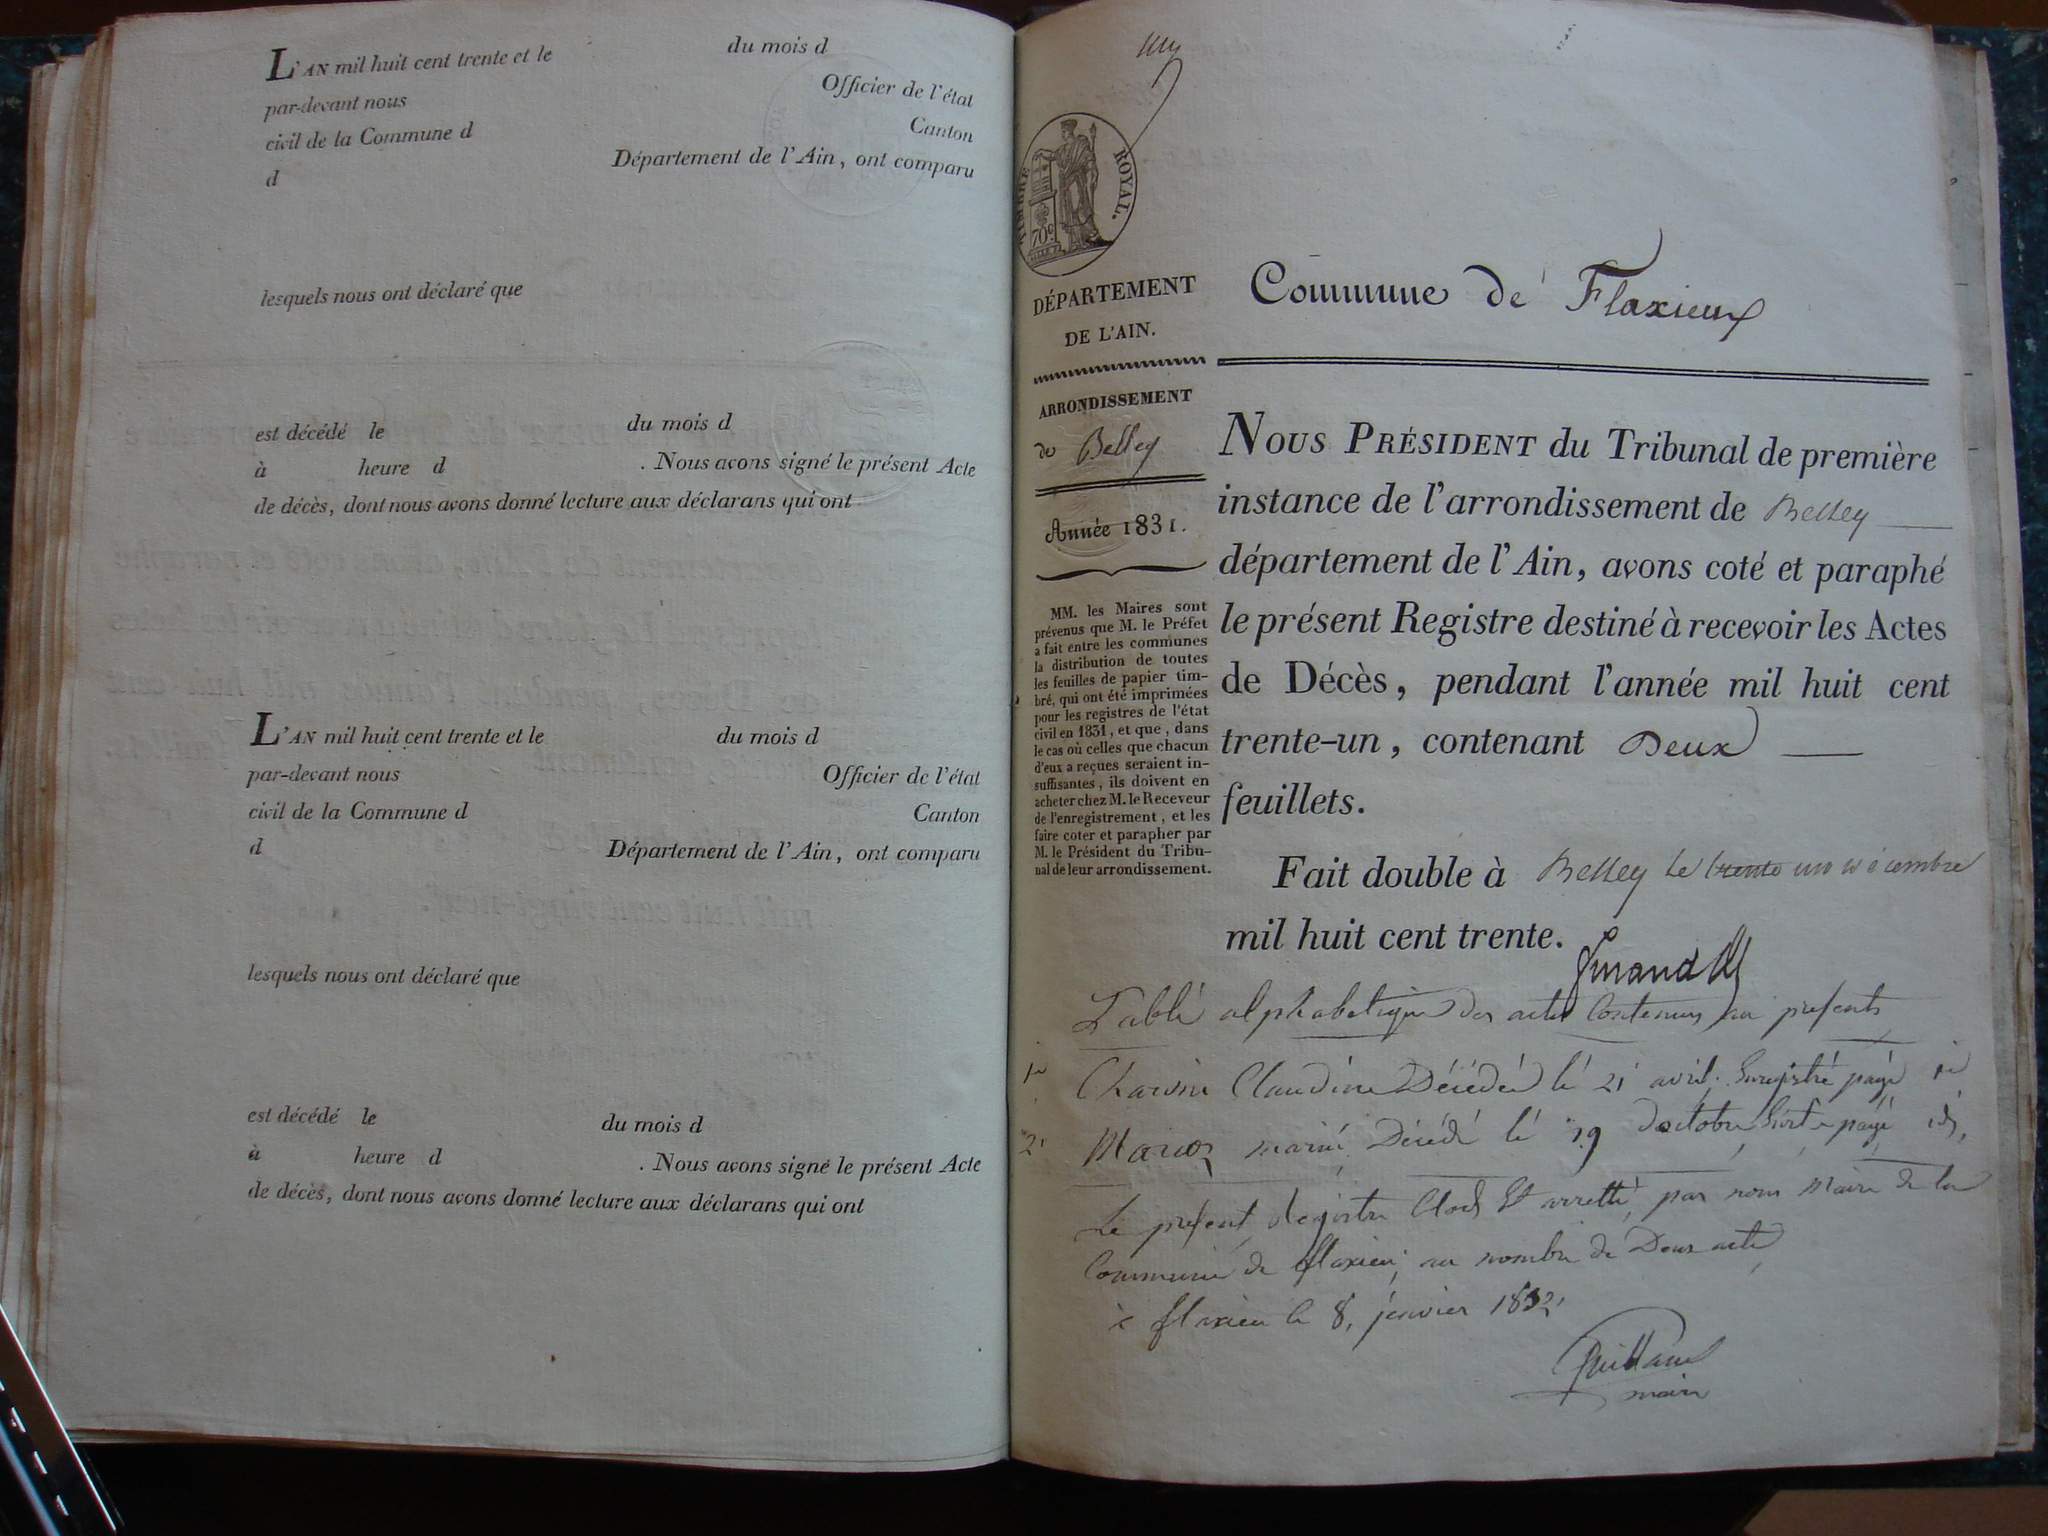 L'AN mil huit cent trente et le du mois d
par-devant nous Officier de l'état
civil de la Commune d Canton
d Département de l'Ain, ont comparu
lesquels nous ont déclaré que
est décédé le du mois d
à heure d . Nous avons signé le présent Acte
de décès, dont nous avons donné lecture aux déclarans qui ont
L'AN mil huit cent trente et le du mois d
par-devant nous Officier de l'état
civil de la Commune d Canton
d Département de l'Ain, ont comparu
lesquels nous ont déclaré que
est décédé le du mois d
à heure d . Nous avons signé le présent Acte
de décès, dont nous avons donné lecture aux déclarans qui ont
TIMBRE ROYAL.
70c
DÉPARTEMENT
DE L'AIN.
ARRONDISSEMENT
de Belley
Année 1831.
MM. les Maires sont
prévenus que M. le Préfet
a fait entre les communes
la distribution de toutes
les feuilles de papier tim-
bré, qui ont été imprimées
pour les registres de l'état
civil en 1831, et que, dans
le cas où celles que chacun
d'eux a reçues seraient in-
suffisantes, ils doivent en
acheter chez M. le Receveur
de l'enregistrement, et les
faire coter et parapher par
M. le Président du Tribu-
nal de leur arrondissement.
Commune de Flaxieux
NOUS PRÉSIDENT du Tribunal de première
instance de l'arrondissement de Belley
département de l'Ain, avons coté et paraphé
le présent Registre destiné à recevoir les Actes
de Décès, pendant l'année mil huit cent
trente-un, contenant Deux
feuillets.
Fait double à Belley le trente un décembre
mil huit cent trente.
Table alphabetique des actes contenus au present
1er Claudine Décédée le 21 avril. Enregistré page
2e marié Décédé le 19 doctobre page id,
Le present Registre Clos Et arretté, par nous Maire de la
Commune de flaxieu, au nombre de Deux acte
à flaxieu le 8, janvier 1832,
maire